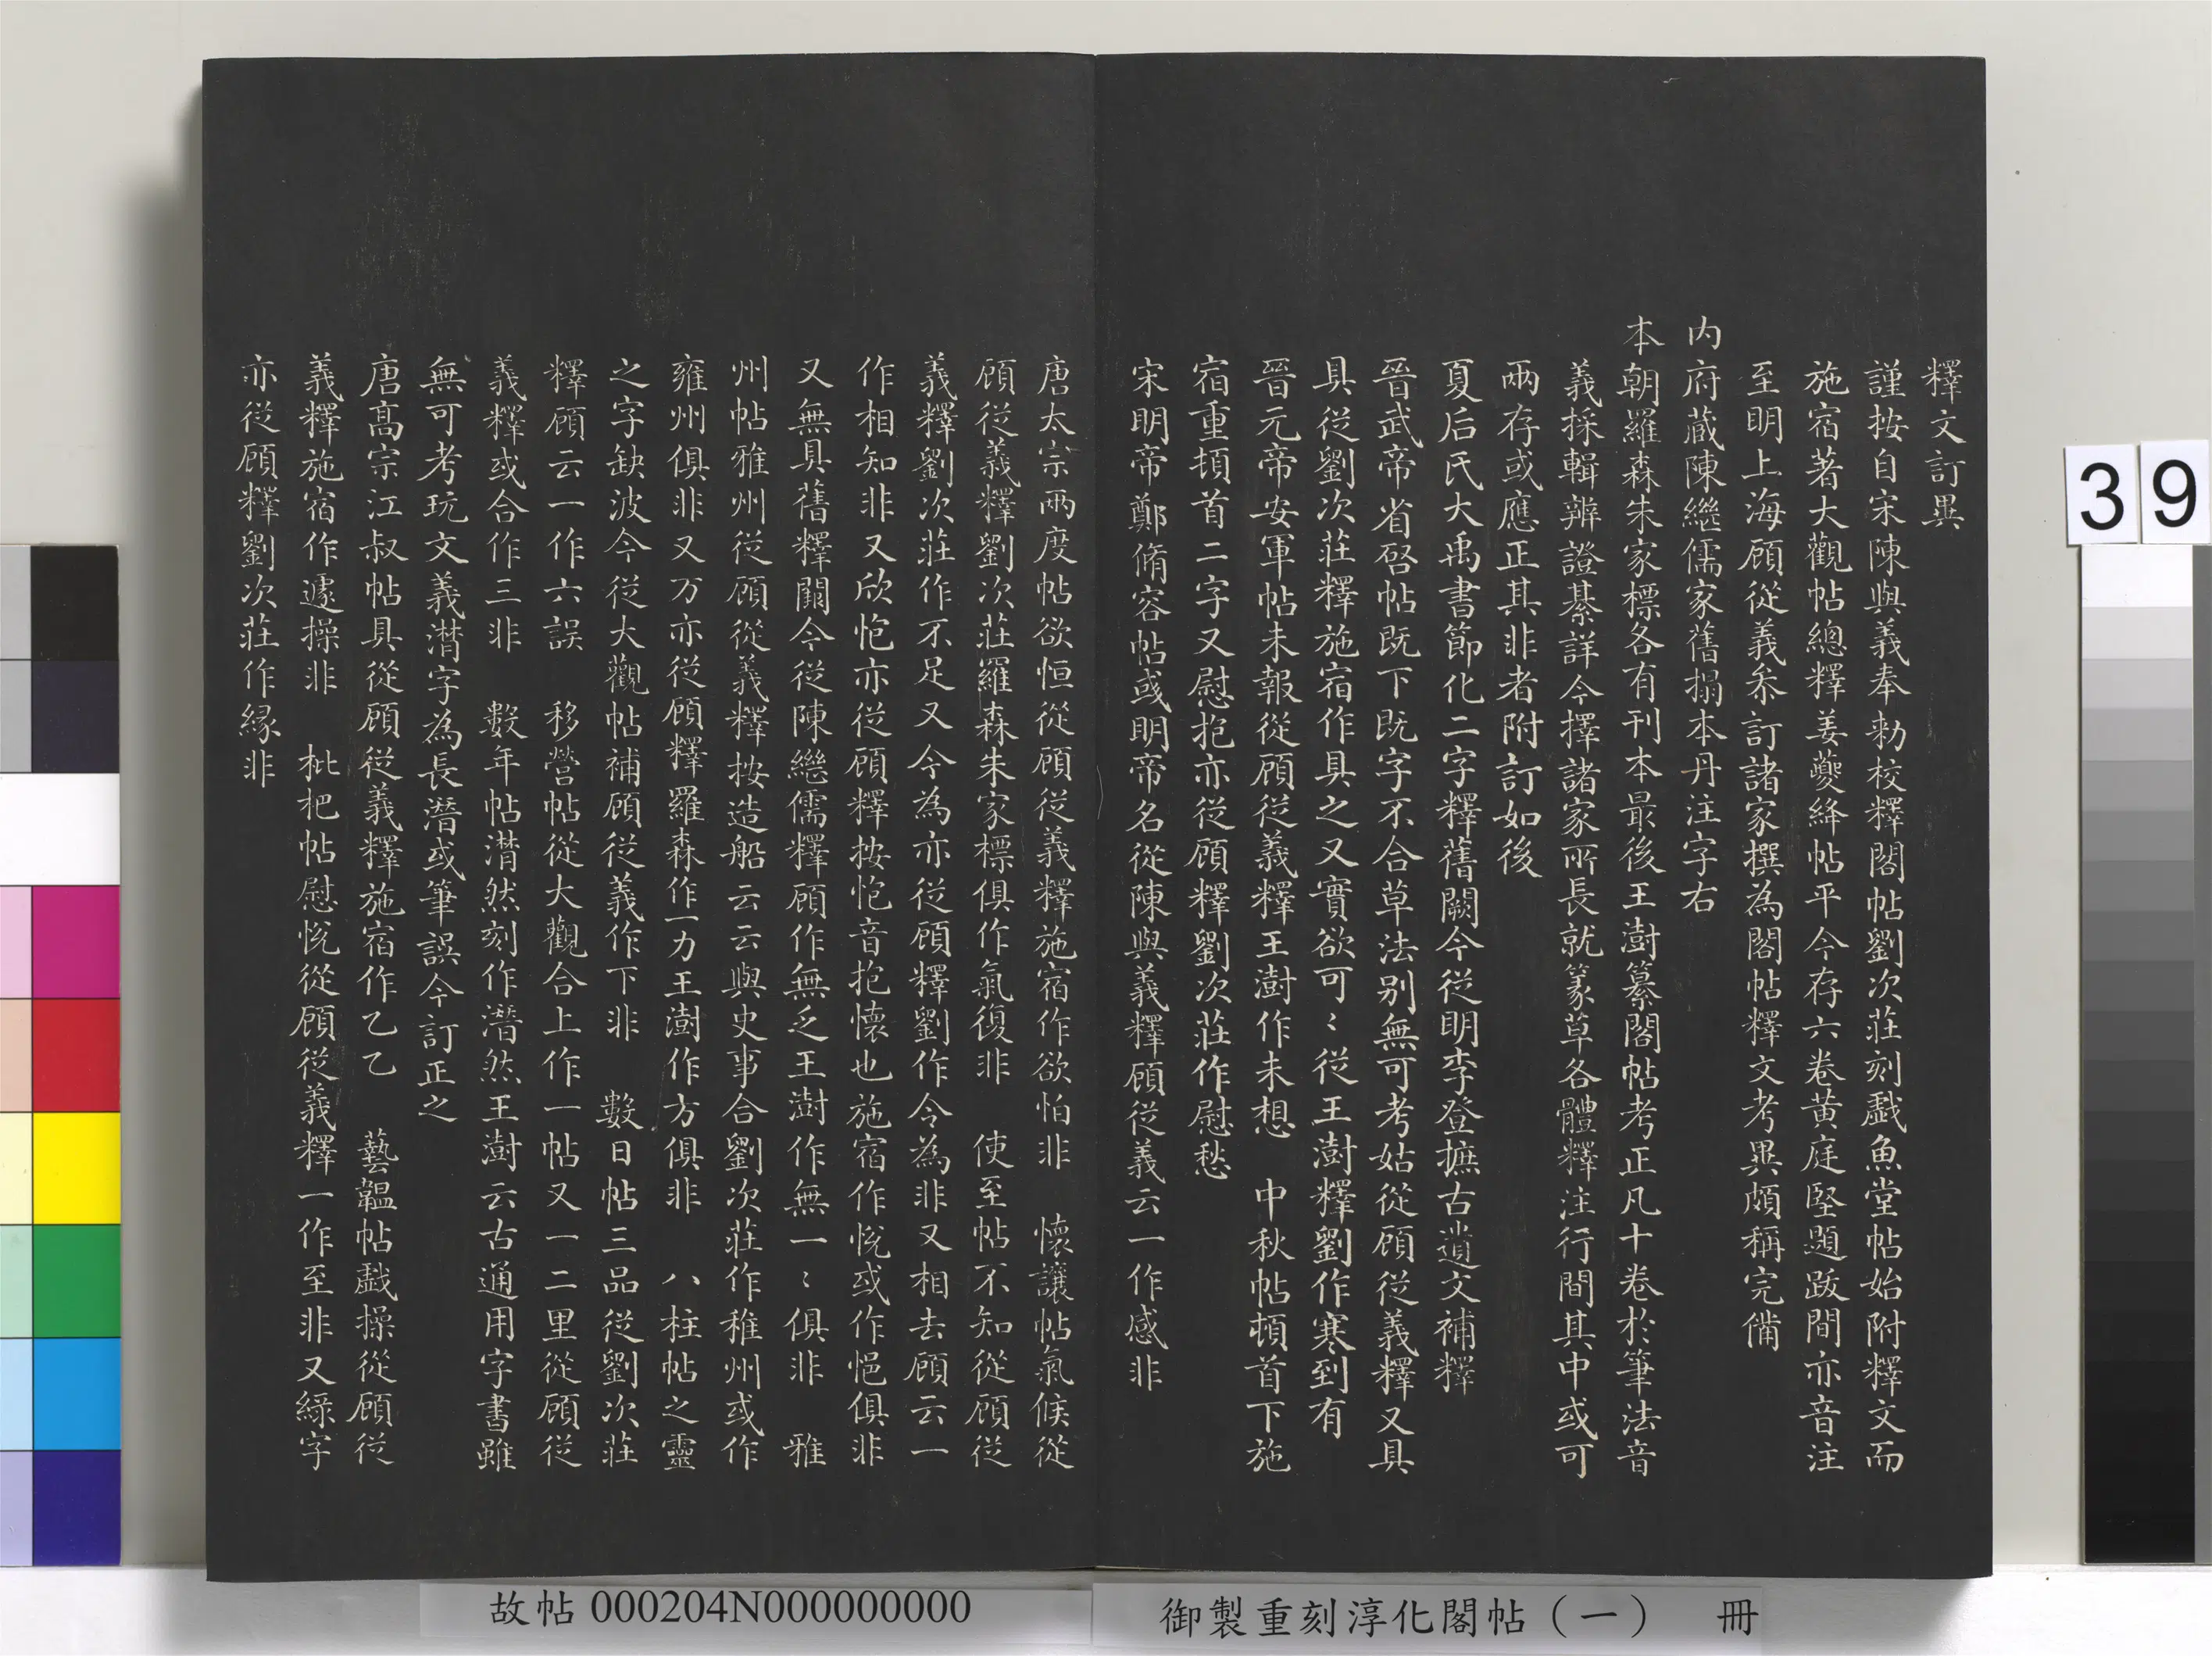 釋文訂異
謹按自宋陳與義奉勅校釋閣帖劉次莊刻戲魚堂帖始附釋文而
施宿著大觀帖總釋姜夔絳帖平今存六卷黃庭堅題跋間亦音注
至明上海顧從義叅訂諸家撰為閣帖釋文考異頗稱完備
內府藏陳繼儒家舊搨本丹注字右
本朝羅森朱家標各有刊本最後王澍纂閣帖考正凡十卷於筆法音
義採輯辨證綦詳今擇諸家所長就篆草各體釋注行間其中或可
兩存或應正其非者附訂如後
夏后氏大禹書節化二字釋舊闕今從明李登摭古遺文補釋
晉武帝省啓帖既下既字不合草法别無可考姑從顧從義釋又具
具從劉次莊釋施宿作具之又實欲可〻從王澍釋劉作寒到有
晉元帝安軍帖未報從顧從義釋王澍作未想　中秋帖頓首下施
宿重頓首二字又慰抱亦從顧釋劉次莊作慰愁
宋明帝鄭脩容帖或明帝名從陳與義釋顧從義云一作感非
唐太宗兩度帖欲恒從顧從義釋施宿作欲怕非　懷讓帖氣候從
顧從義釋劉次莊羅森朱家標俱作氣復非　使至帖不知從顧從
義釋劉次莊作不足又今為亦從顧釋劉作令為非又相去顧云一
作相知非又欣怉亦從顧釋按怉音抱懷也施宿作悦或作悒俱非
又無具舊釋闕今從陳繼儒釋顧作無乏王澍作無一〻俱非　雅
州帖雅州從顧從義釋按造船云云與史事合劉次莊作稚州或作
雍州俱非又万亦從顧釋羅森作一力王澍作方俱非　八柱帖之靈
之字缺波今從大觀帖補顧從義作下非　數日帖三品從劉次莊
釋顧云一作六誤　移營帖從大觀合上作一帖又一二里從顧從
義釋或合作三非　數年帖潸然刻作潜然王澍云古通用字書雖
無可考玩文義潸字為長潜或筆誤今訂正之
唐高宗江叔帖具從顧從義釋施宿作乙乙　藝韞帖戲操從顧從
義釋施宿作遽操非　枇杷帖慰悦從顧從義釋一作至非又緑字
亦從顧釋劉次莊作緣非
39
故帖 000204N000000000
御製重刻淳化閣帖（一）　冊